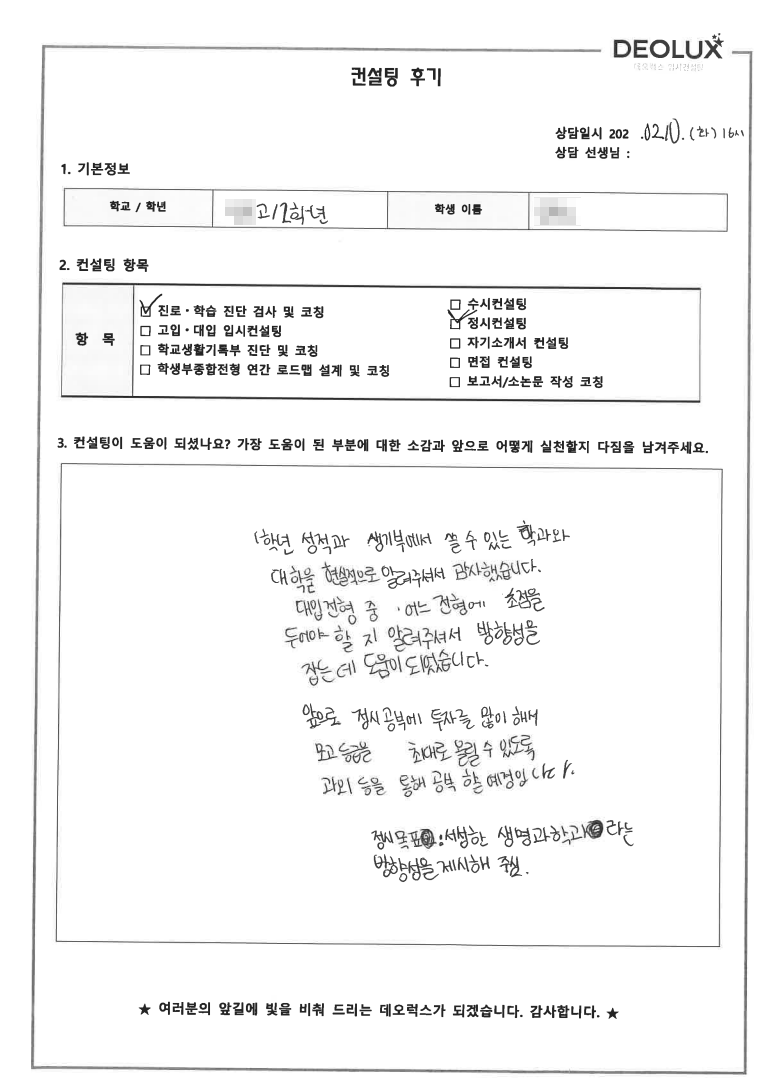 DEOLUX
데오럭스 입시컨설팅
컨설팅 후기
상담일시 202 .02.10.(화) 16시
상담 선생님 :
1. 기본정보
학교 / 학년 고/2학년 학생 이름
2. 컨설팅 항목
항 목
☑ 진로·학습 진단 검사 및 코칭
☐ 고입·대입 입시컨설팅
☐ 학교생활기록부 진단 및 코칭
☐ 학생부종합전형 연간 로드맵 설계 및 코칭
☐ 수시컨설팅
☑ 정시컨설팅
☐ 자기소개서 컨설팅
☐ 면접 컨설팅
☐ 보고서/소논문 작성 코칭
3. 컨설팅이 도움이 되셨나요? 가장 도움이 된 부분에 대한 소감과 앞으로 어떻게 실천할지 다짐을 남겨주세요.
1학년 성적과 생기부에서 쓸 수 있는 학과와
대학을 현실적으로 알려주셔서 감사했습니다.
대입전형 중 어느 전형에 초점을
두어야 할 지 알려주셔서 방향성을
잡는데 도움이 되었습니다.
앞으로 정시공부에 투자를 많이 해서
모고 등급을 최대로 올릴 수 있도록
과외 등을 통해 공부 할 예정입니다.
정시목표 : 서성한 생명과학과 라는
방향성을 제시해 주심.
★ 여러분의 앞길에 빛을 비춰 드리는 데오럭스가 되겠습니다. 감사합니다. ★